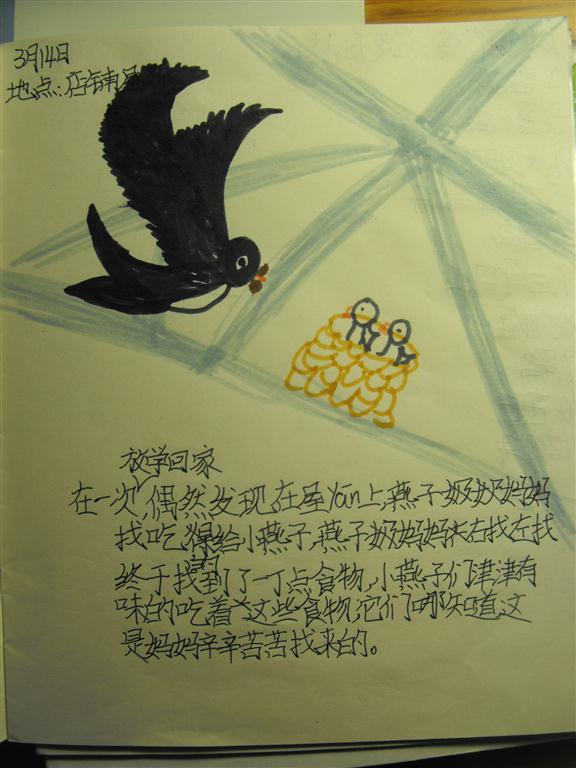 3月14日
地点:店铺
放学回家
在一次偶然发现在屋Yan上,燕子奶奶妈妈
找吃给小燕子,燕子奶妈妈东右找左找
终于找到了一丁点食物,小燕子们津津有
味的吃着这些食物,它们哪知道,这
是妈妈辛辛苦苦找来的。